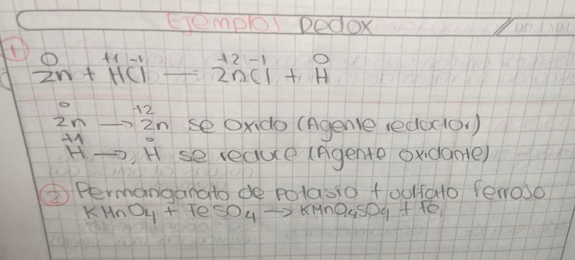 Ejemplos Redox
1
0 +1 -1 +2 -1 0
Zn + HCl — ZnCl + H
0 +2
Zn → Zn se oxido (Agente reductor)
+1 0
H → H se reduce (Agente oxidante)
2 Permanganato de potasio + sulfato ferroso
KMnO4 + FeSO4 → KMnO4SO4 + Fe